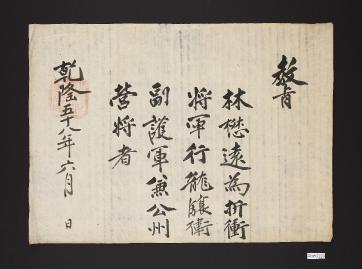 敎旨
林懋遠爲折衝
將軍行龍驤衛
副護軍兼公州
營將者
乾隆五十八年六月 日